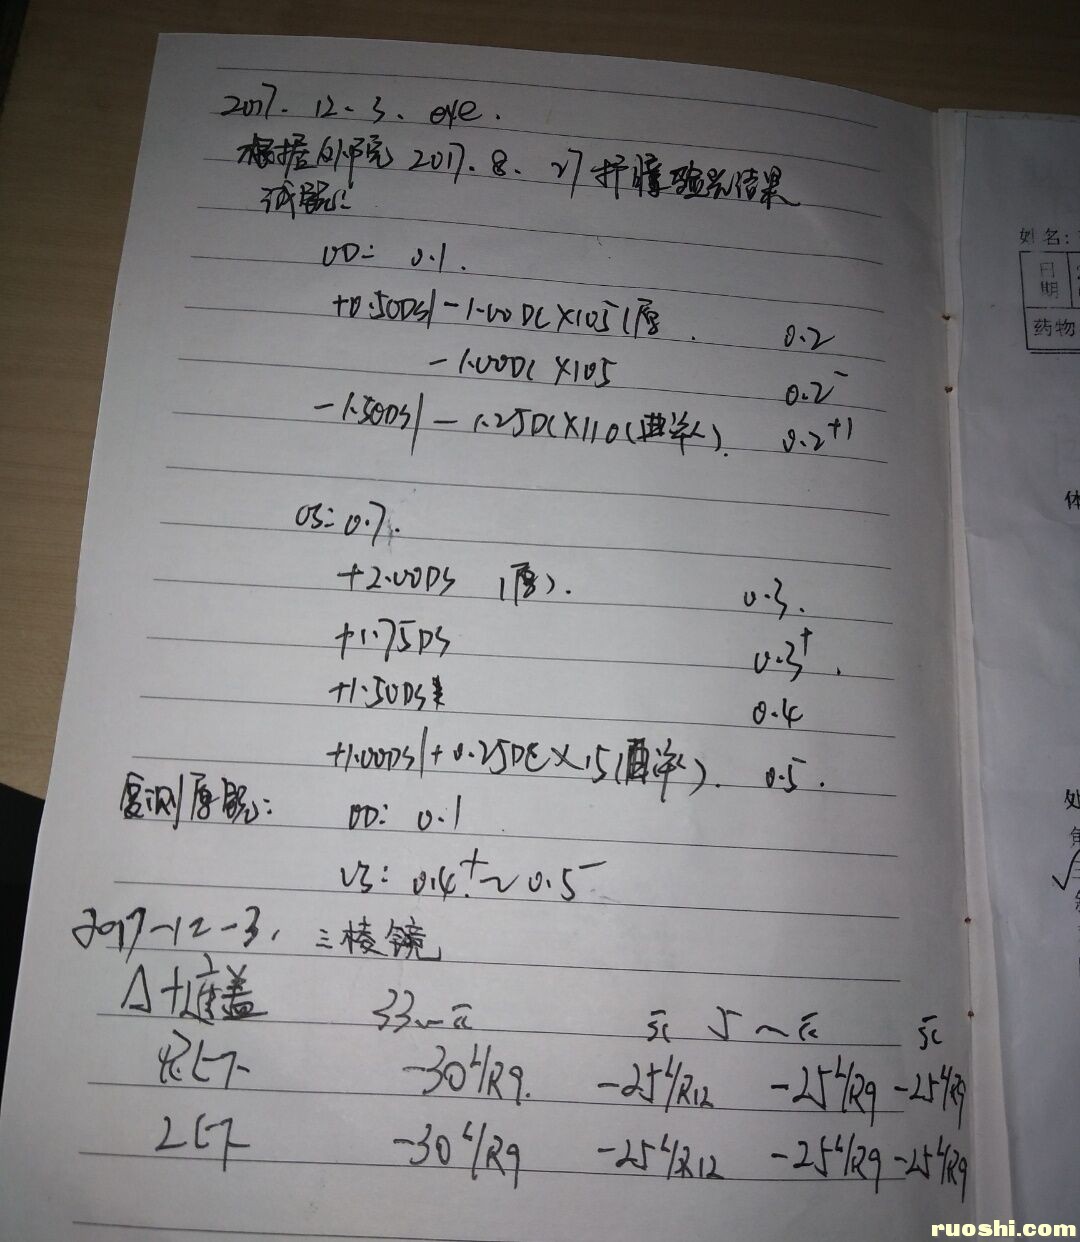 2017. 12-3. eye.
根据 2017.8.27 扩瞳验光结果
试眼:
OD: 0.1.
+0.50DS/-1.00DC×105(原 0.2
-1.00DC×105 0.2-
-1.50DS/-1.25DC×110( ). 0.2+1
OS: 0.7.
+2.00DS (原). 0.3.
+1.75DS 0.3+.
+1.50DS 0.4
+1.00DS/+0.25DC×15( ). 0.5.
复测原 : OD: 0.1
OS: 0.4+~0.5-
2017-12-3. 三棱镜
Δ+ 盖 33
-30 L/R9. -25 L/R12 -25 L/R9 -25 L/R9
-30 L/R9 -25 L/R12 -25 L/R9 -25 L/R9
姓名:
日期
药物
体
处
ruoshi.com